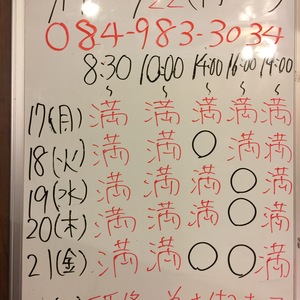 084-983-3034
8:30 10:00 14:00 16:00 19:00
〜 〜 〜 〜 〜
17(月) 満 満 満 満 満
18(火) 満 満 ○ 満 満
19(水) 満 満 満 ○ 満
20(木) 満 満 満 ○ 満
21(金) 満 満 ○ ○ 満